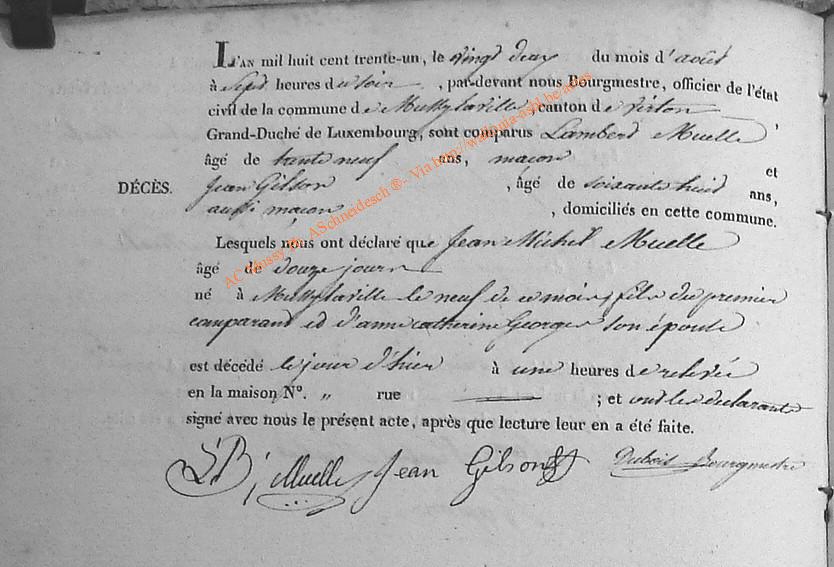 L'AN mil huit cent trente-un, le vingt deux du mois d'août
à sept heures du soir, par-devant nous Bourgmestre, officier de l'état
civil de la commune de Mussy la ville, canton de virton,
Grand-Duché de Luxembourg, sont comparus Lambert Muelle
âgé de trente neuf ans, maçon et
DÉCÈS.
Jean Gilson, âgé de soixante huit ans,
aussi maçon, domiciliés en cette commune.
Lesquels nous ont déclaré que Jean Michel Muelle
âgé de douze jours
né à Mussy la ville le neuf de ce mois, fils du premier
comparant et d'anne catherine Georges son épouse
est décédé le jour d'hier à une heures de relevée
en la maison N°. „ rue ; et ont les declarants
signé avec nous le présent acte, après que lecture leur en a été faite.
LB; Muelle Jean Gilson Dubois Bourgmestre
AC Mussy Ph. ASchneidesch ®- Via http://wallonia-asbl.be/ades